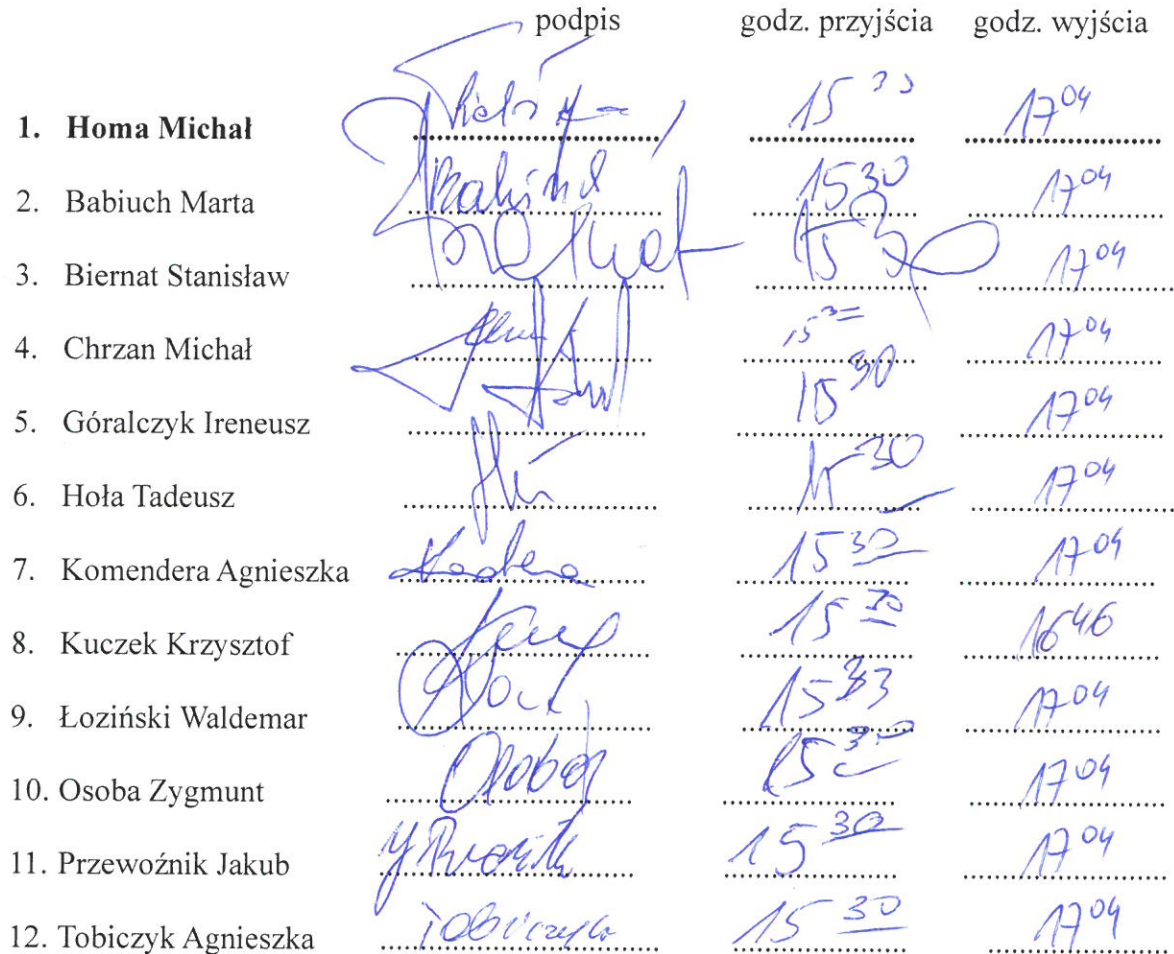 podpis godz. przyjścia godz. wyjścia
1. Homa Michał 15 33 17 04
2. Babiuch Marta 15 30 17 04
3. Biernat Stanisław 15 30 17 04
4. Chrzan Michał 15 30 17 04
5. Góralczyk Ireneusz 15 30 17 04
6. Hoła Tadeusz 15 30 17 04
7. Komendera Agnieszka 15 30 17 04
8. Kuczek Krzysztof 15 30 16 46
9. Łoziński Waldemar 15 33 17 04
10. Osoba Zygmunt Osoba 15 30 17 04
11. Przewoźnik Jakub 15 30 17 04
12. Tobiczyk Agnieszka Tobiczyk 15 30 17 04